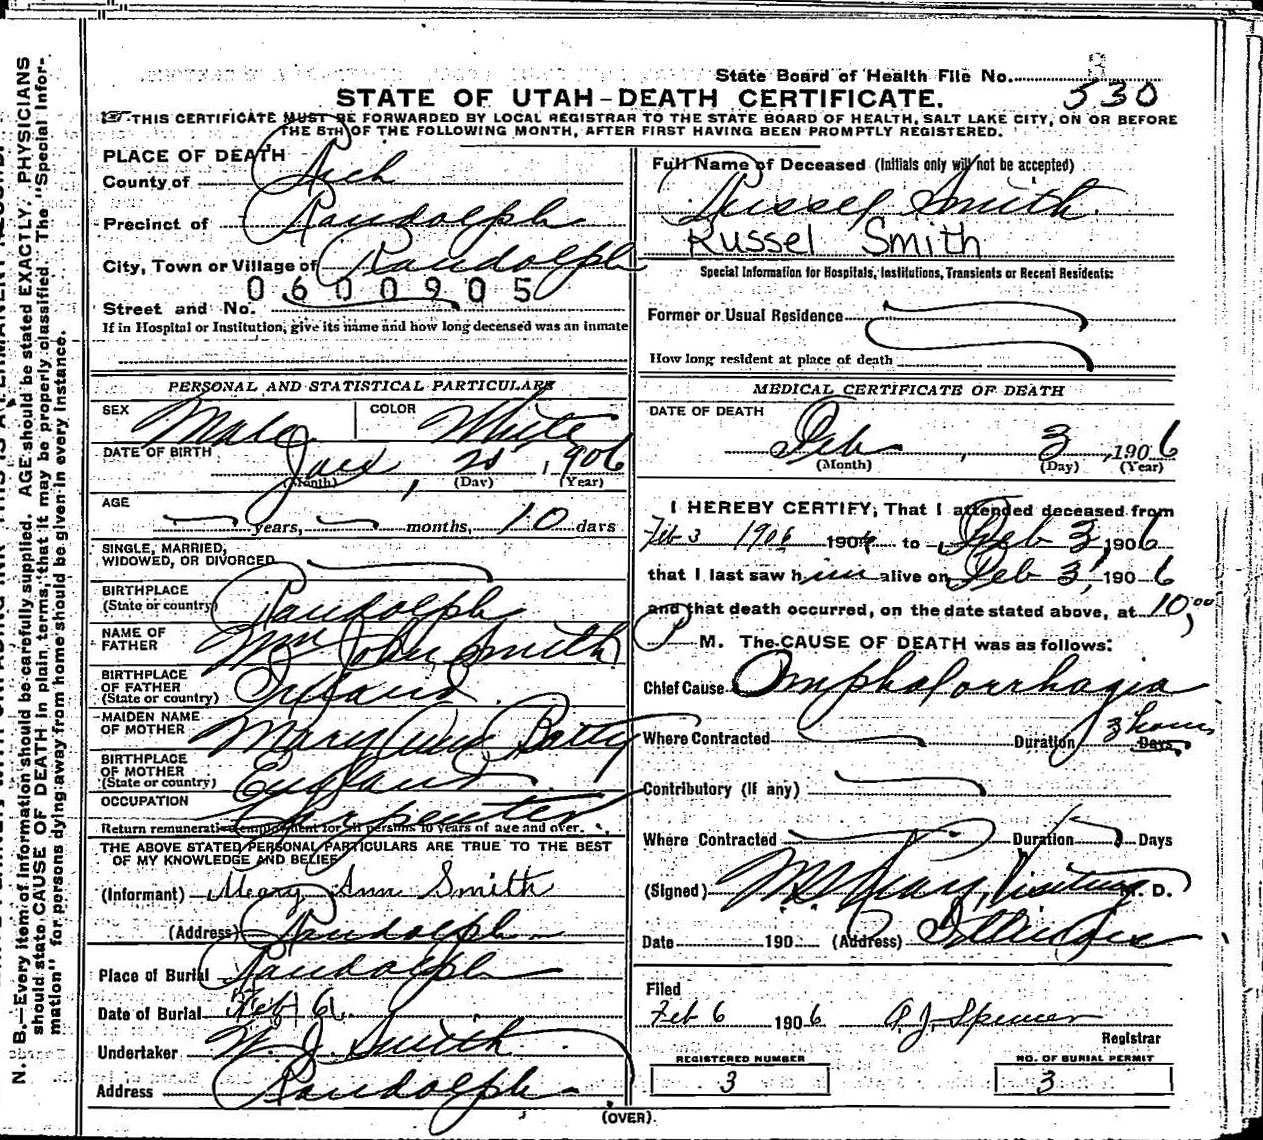 State Board of Health File No. 530
STATE OF UTAH-DEATH CERTIFICATE.
THIS CERTIFICATE MUST BE FORWARDED BY LOCAL REGISTRAR TO THE STATE BOARD OF HEALTH, SALT LAKE CITY, ON OR BEFORE
THE 5TH OF THE FOLLOWING MONTH, AFTER FIRST HAVING BEEN PROMPTLY REGISTERED.
PLACE OF DEATH
County of Rich
Precinct of Randolph
City, Town or Village of Randolph
0600905
Street and No.
If in Hospital or Institution, give its name and how long deceased was an inmate
PERSONAL AND STATISTICAL PARTICULARS
SEX Male COLOR White
DATE OF BIRTH 1906
(Month) (Day) (Year)
AGE years, months, 10 days
SINGLE, MARRIED,
WIDOWED, OR DIVORCED
BIRTHPLACE
(State or country) Randolph
NAME OF
FATHER Wm John Smith
BIRTHPLACE
OF FATHER
(State or country) Ireland
MAIDEN NAME
OF MOTHER Mary Ann Batty
BIRTHPLACE
OF MOTHER
(State or country) England
OCCUPATION Carpenter
Return remunerative employment for all persons 10 years of age and over.
THE ABOVE STATED PERSONAL PARTICULARS ARE TRUE TO THE BEST
OF MY KNOWLEDGE AND BELIEF
(Informant) Meary Ann Smith
(Address) Randolph
Place of Burial Randolph
Date of Burial Feb 6
Undertaker W. J. Smith
Address Randolph
Full Name of Deceased (Initials only will not be accepted)
Russel Smith
Russel Smith
Special Information for Hospitals, Institutions, Transients or Recent Residents:
Former or Usual Residence
How long resident at place of death
MEDICAL CERTIFICATE OF DEATH
DATE OF DEATH
Feb 3, 1906
(Month) (Day) (Year)
I HEREBY CERTIFY, That I attended deceased from
Feb 3 1906 190 to Feb 3, 1906
that I last saw him alive on Feb 3, 1906
and that death occurred, on the date stated above, at 10,00
P M. The CAUSE OF DEATH was as follows:
Chief Cause Omphalorrhagia
Where Contracted Duration 3 hours Days
Contributory (If any)
Where Contracted Duration Days
(Signed) Visiting M. D.
Date 190 (Address)
Filed
Feb 6 1906 A. J. Spencer
Registrar
REGISTERED NUMBER
3
NO. OF BURIAL PERMIT
3
(OVER)
N. B.—Every item of information should be carefully supplied. AGE should be stated EXACTLY. PHYSICIANS
should state CAUSE OF DEATH in plain terms, that it may be properly classified. The "Special Infor-
mation" for persons dying away from home should be given in every instance.